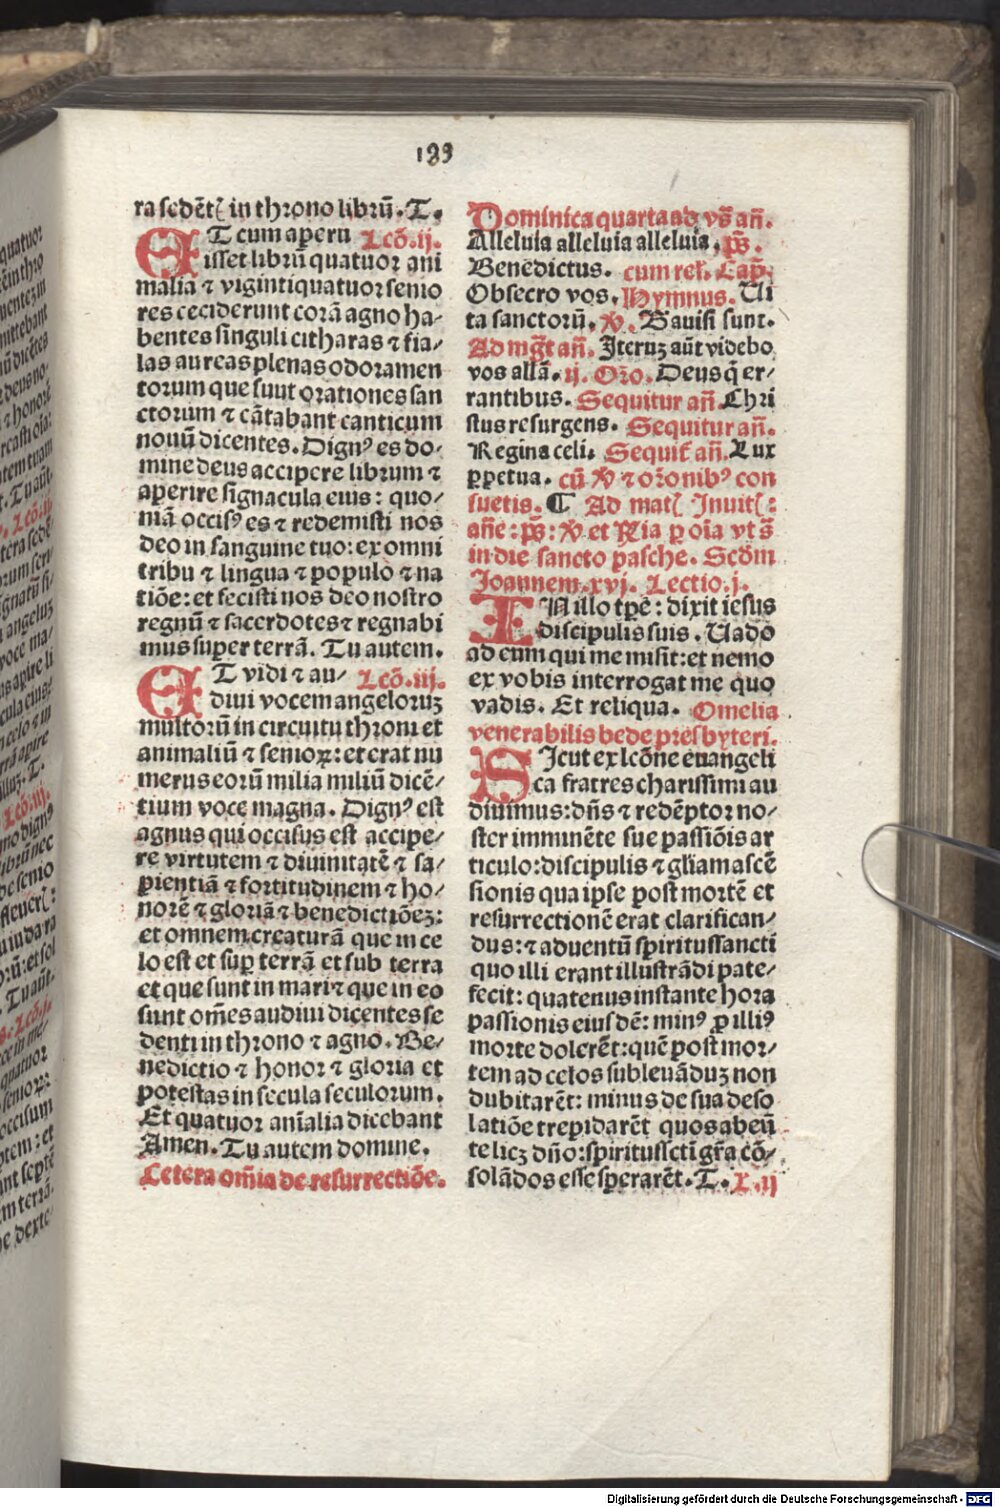 133
ra sedẽtꝭ in throno librũ. T.
ET cum aperu Lcõ.ij.
isset librũ quatuor ani
malia ⁊ vigintiquatuor senio
res ceciderunt corã agno ha/
bentes singuli citharas ⁊ fia/
las aureas plenas odoramen
torum que sunt orationes san
ctorum ⁊ cãtabant canticum
nouũ dicentes. Dignꝰ es do/
mine deus accipere librum ⁊
aperire signacula eius: quo/
niã occisꝰ es ⁊ redemisti nos
deo in sanguine tuo: ex omni
tribu ⁊ lingua ⁊ populo ⁊ na
tiõe: et fecisti nos deo nostro
regnũ ⁊ sacerdotes ⁊ regnabi
mus super terrã. Tu autem.
ET vidi ⁊ au/ Lcõ.iij.
diui vocem angeloruꝫ
multorũ in circuitu throni et
animaliũ ⁊ senioꝝ: et erat nu
merus eorũ milia miliũ dicẽ/
tium voce magna. Dignꝰ est
agnus qui occisus est accipe/
re virtutem ⁊ diuinitatẽ ⁊ sa/
pientiã ⁊ fortitudinem ⁊ ho/
norẽ ⁊ gloriã ⁊ benedictiõeꝫ:
et omnem creaturã que in ce
lo est et suꝑ terrã et sub terra
et que sunt in mari ⁊ que in eo
sunt om̃es audiui dicentes se
denti in throno ⁊ agno. Be/
nedictio ⁊ honor ⁊ gloria et
potestas in secula seculorum.
Et quatuor anĩalia dicebant
Amen. Tu autem domine.
Cetera om̃ia de resurrectiõe.
Dominica quarta ad vs̃ añ.
Alleluia alleluia alleluia. ps̃.
Benedictus. cum rel̃. Cap̃.
Obsecro vos. Hymnus. Ui
ta sanctorũ. ℣. Gauisi sunt.
Ad mg̃t añ. Iteruꝫ aũt videbo
vos allã. ij. Or̃o. Deus q̃ er/
rantibus. Sequitur añ. Chri
stus resurgens. Sequitur añ.
Regina celi. Sequit̃ añ. Lux
ꝑpetua. cũ ℣ ⁊ or̃onibꝰ con
suetis. ¶ Ad matꝭ Inuitꝭ:
añe: ps̃: ℣ et Ria ꝑ oĩa vt s̃
in die sancto pasche. Scd̃m
Joannem.xvj. Lectio.j.
IN illo tp̃e: dixit iesus
discipulis suis. Uado
ad eum qui me misit: et nemo
ex vobis interrogat me quo
vadis. Et reliqua. Omelia
venerabilis bede presbyteri.
SIcut ex lcõne euangeli
ca fratres charissimi au
diuimus: dñs ⁊ redẽptor no/
ster imminẽte sue passiõis ar
ticulo: discipulis ⁊ gl̃iam ascẽ
sionis qua ipse post mortẽ et
resurrectionẽ erat clarifican/
dus: ⁊ aduentũ spiritussancti
quo illi erant illustrãdi pate/
fecit: quatenus instante hora
passionis eiusdẽ: minꝰ ꝑ illiꝰ
morte dolerẽt: quẽ post mor/
tem ad celos subleuãduꝫ non
dubitarẽt: minus de sua deso
latiõe trepidarẽt quos abeũ
te licꝫ dño: spiritussct̃i gr̃a cõ/
solãdos esse sperarẽt. T. R.ij
Digitalisierung gefördert durch die Deutsche Forschungsgemeinschaft - DFG